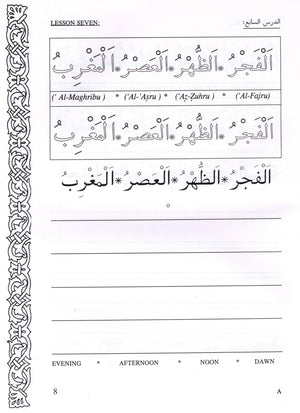 LESSON SEVEN: الدرس السابع:
اَلْفَجْرُ * اَلظُّهْرُ * اَلْعَصْرُ * اَلْمَغْرِبُ
(' Al-Maghribu ) * ('Al-'Aṣru ) * ('Aẓ-Ẓuhru ) * ('Al-Fajru)
اَلْفَجْرُ * اَلظُّهْرُ * اَلْعَصْرُ * اَلْمَغْرِبُ
اَلْفَجْرُ * اَلظُّهْرُ * اَلْعَصْرُ * اَلْمَغْرِبُ
EVENING * AFTERNOON * NOON * DAWN
8 ٨